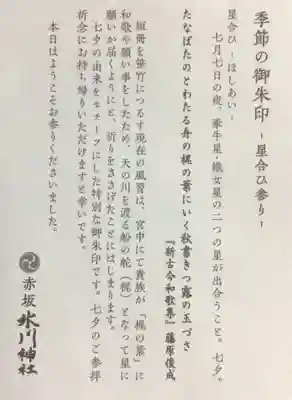 季節の御朱印 ~星合ひ参り~
星合ひ ~ほしあい~
七月七日の夜、牽牛星・織女星の二つの星が出合うこと。七夕。
たなばたのとわたる舟の梶の葉にいく秋書きつ露の玉づさ
『新古今和歌集』藤原俊成
短冊を笹竹につるす現在の風習は、宮中にて貴族が「梶の葉」に
和歌や願い事をしたため、天の川を渡る船の舵(梶)となって星に
願いが届くようにと、祈りをささげたことにはじまります。
七夕の由来をモチーフにした特別な御朱印です。七夕のご参拝
祈念にお持ち帰りいただけますと幸いです。
本日はようこそお参りくださいました。
赤坂 氷川神社